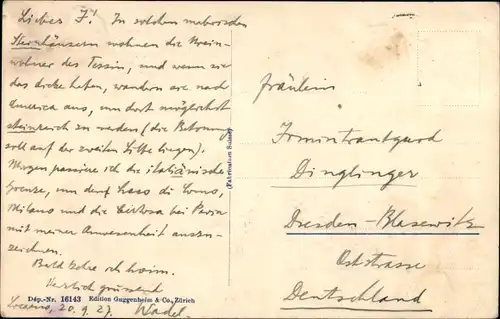 Lieber J.! In solchen malerischen
Steinhäusern wohnen die Urein-
wohner des Tessin, und wenn sie
das dicke haben, wandern sie nach
America aus, um dort möglichst
steinreich zu werden (die Betonung
soll auf der zweiten Silbe liegen).
Morgen passiere ich die italiänische
Grenze, um dann Lago di Como,
Milano und die Certosa bei Pavia
mit meiner Anwesenheit auszu-
zeichnen.
Bald kehre ich heim.
Herzlich grüssend
Locarno, 20.9.27. Wadel.
Dép.-Nr. 16143 Edition Guggenheim & Co., Zürich
(Fabrication Suisse)
Fräulein
Irmintrantgard
Dinglinger
Dresden-Blasewitz
Oststrasse
Deutschland